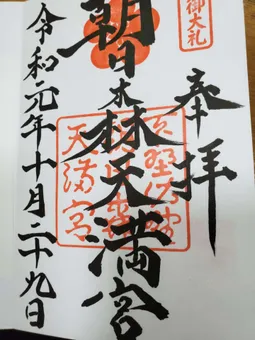 御大礼
奉拝
朝日森天満宮
天満宮
令和元年十月二十九日